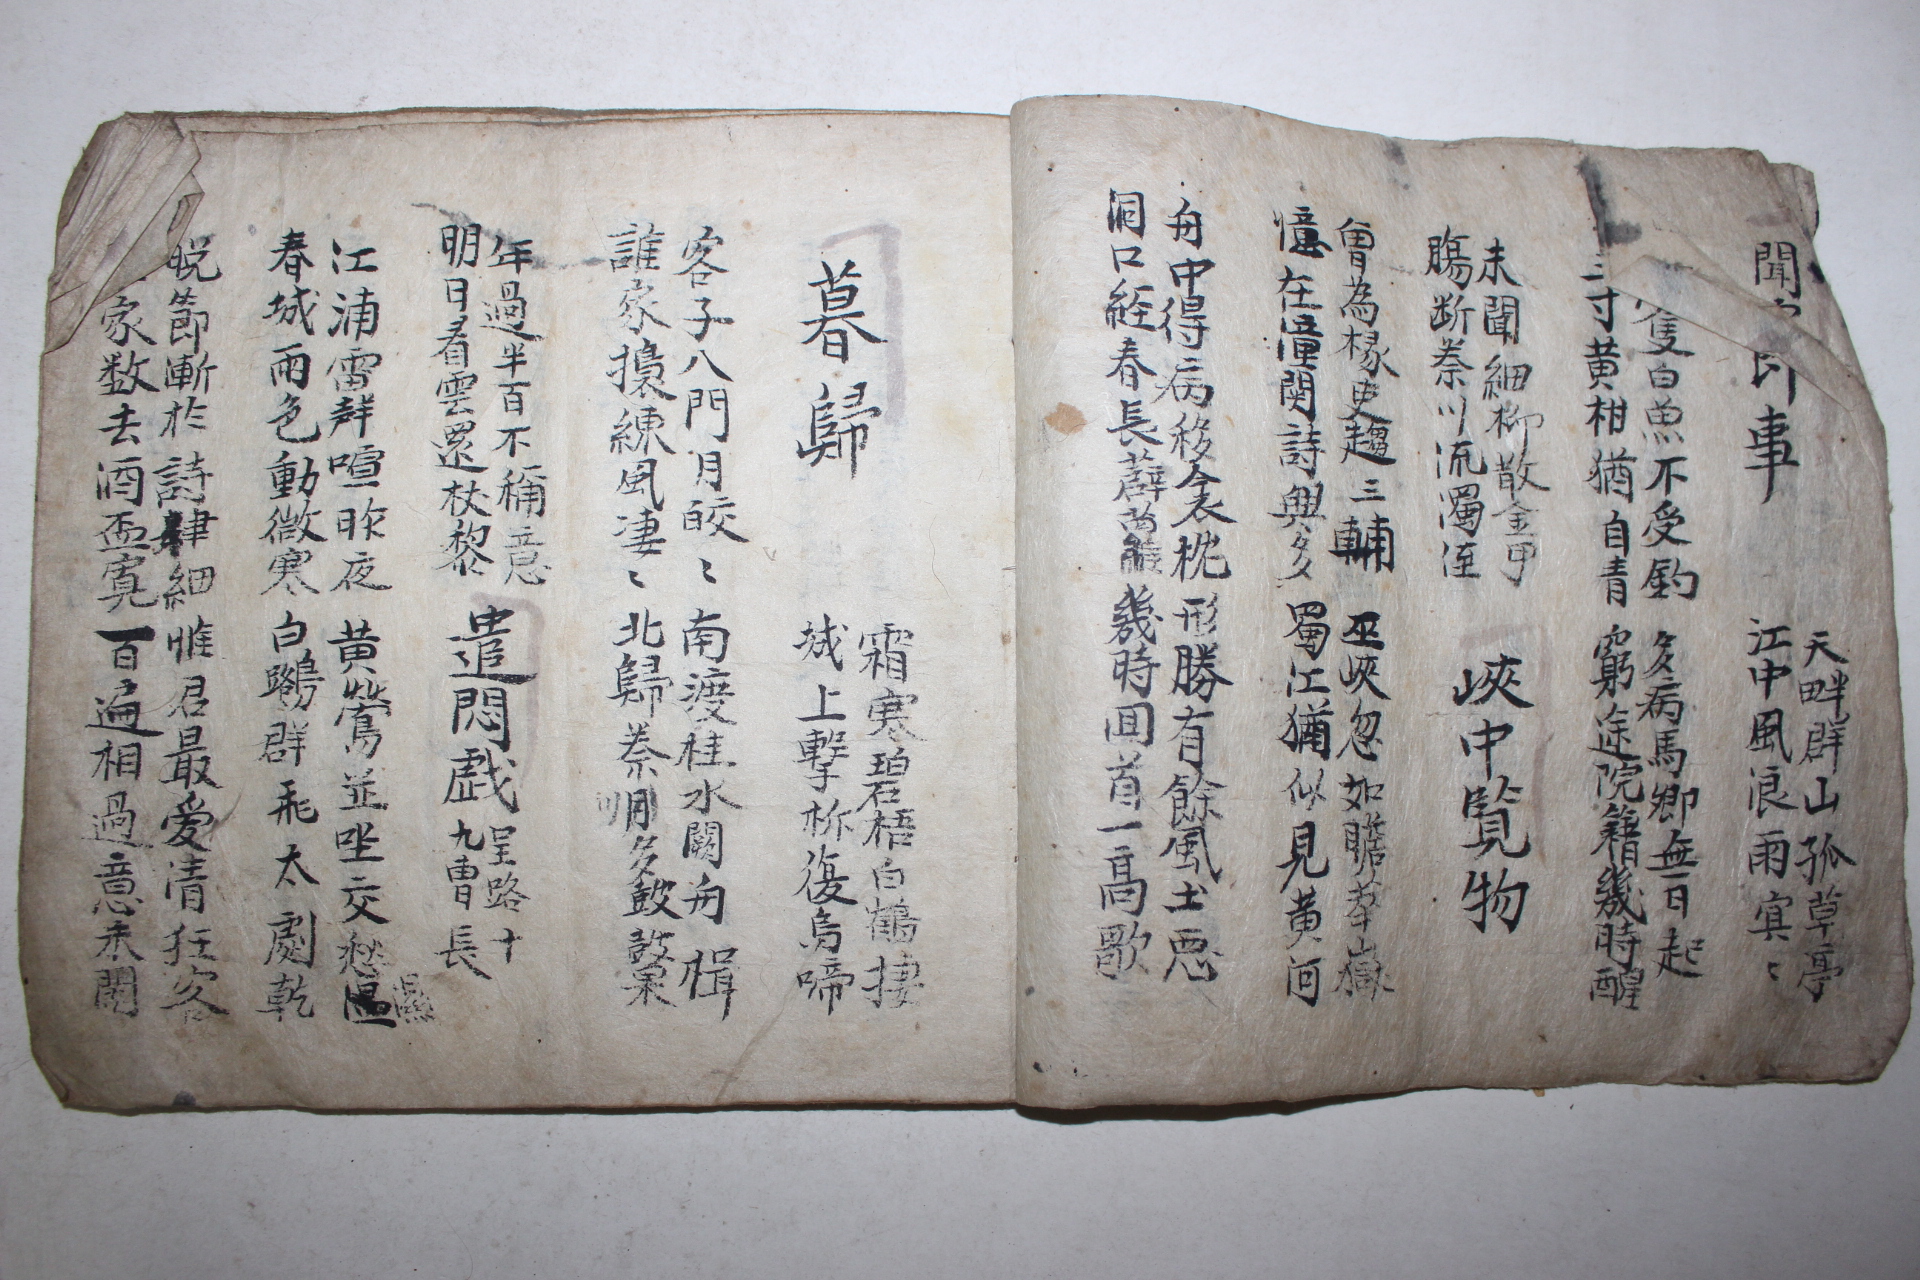 聞
即事
天畔群山孤草亭
江中風浪雨冥〻
隻白魚不受釣
三寸黄柑猶自青
多病馬卿無日起
窮途院籍幾時醒
未聞細柳散金甲
腸断秦川流濁涇
峽中覧物
曾為掾吏趨三輔
憶在潼関詩興多
巫峽忽如瞻華嶽
蜀江猶似見黄河
舟中得病移衾枕
洞口経春長薜蘿
形勝有餘風土悪
幾時囬首一高歌
暮歸
霜寒碧梧白鶴捿
城上擊柝復烏啼
客子入門月皎〻
誰家搗練風凄〻
南渡桂水闕舟楫
北歸秦川多鼓鼙
年過半百不稱意
明日看雲還杖藜
遣悶戯
呈路十
九曹長
江浦雷聲喧昨夜
春城雨色動微寒
黄鶯並坐交愁濕
白鷺群飛太劇乾
晩節漸於詩律細
家数去酒盃寛
惟君最愛清狂客
百遍相過意未闌